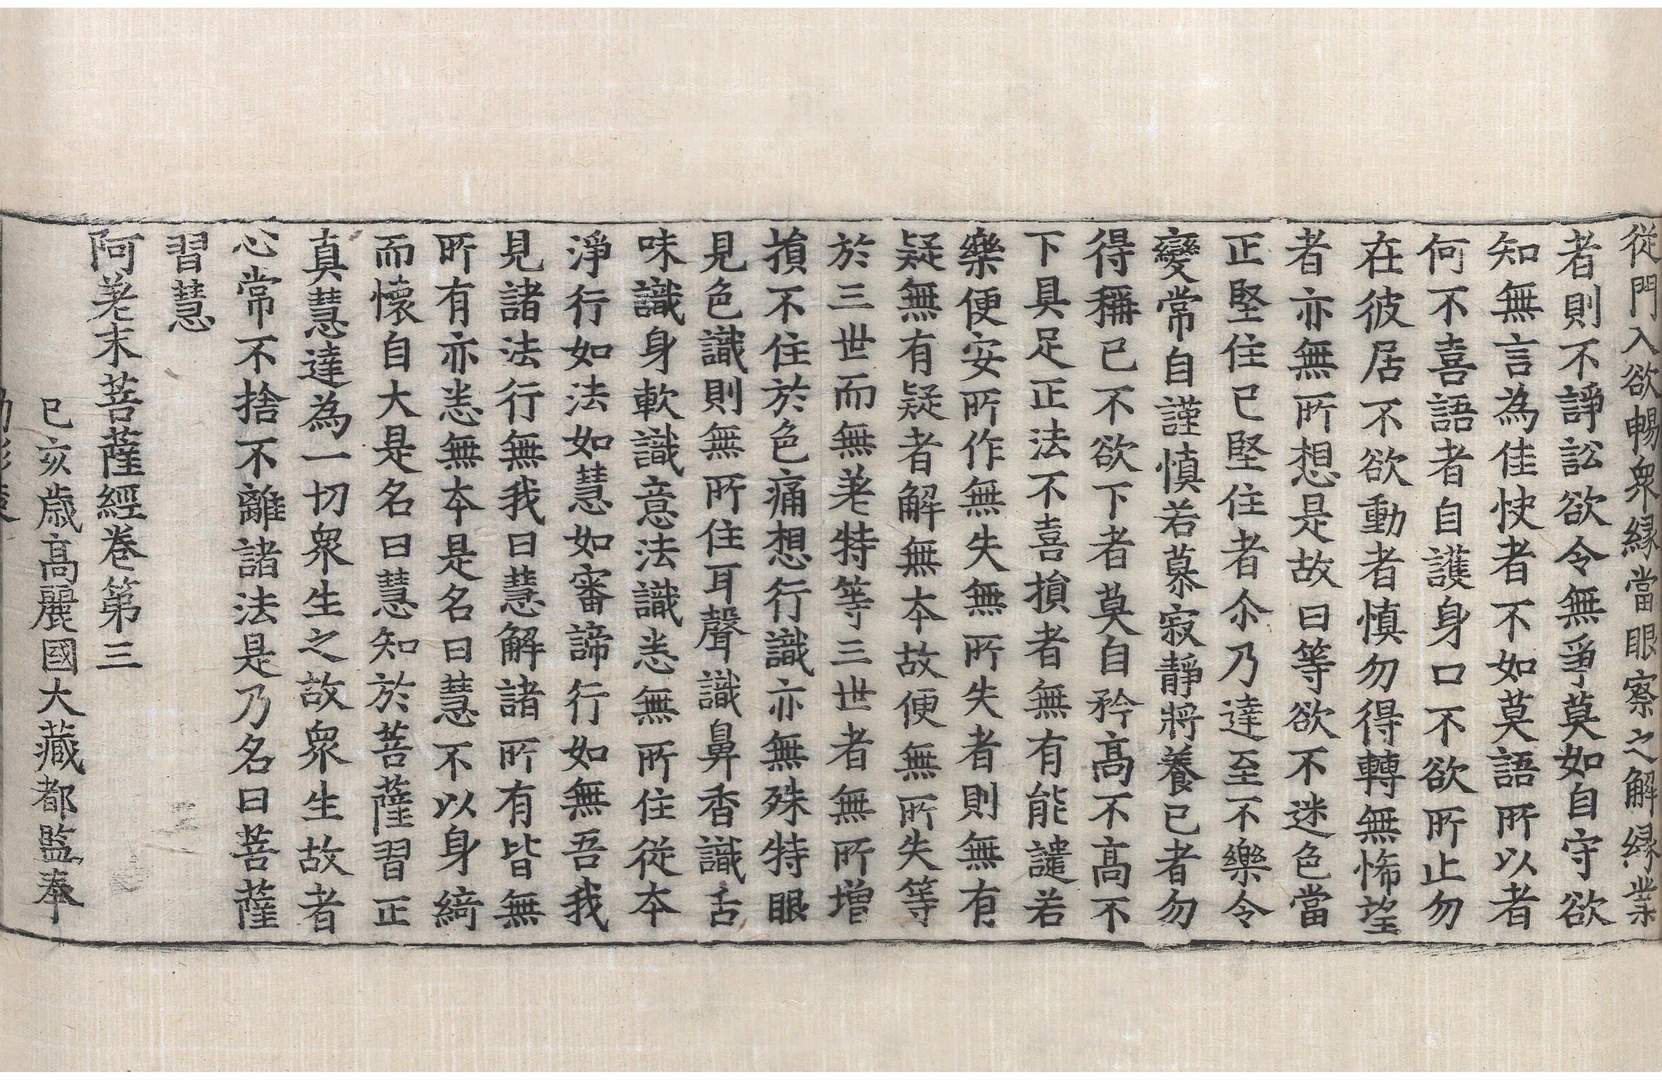 從門入欲暢衆緣當眼察之解縁業
者則不諍訟欲令無爭莫如自守欲
知無言為佳快者不如莫語所以者
何不喜語者自護身口不欲所止勿
在彼居不欲動者慎勿得轉無悕望
者亦無所想是故曰等欲不迷色當
正堅住已堅住者尒乃達至不樂令
變常自謹慎若慕寂靜將養已者勿
得稱已不欲下者莫自矜髙不髙不
下具足正法不喜損者無有能譴若
樂便安所作無失無所失者則無有
疑無有疑者解無本故便無所失等
於三世而無差特等三世者無所增
損不住於色痛想行識亦無殊特眼
見色識則無所住耳聲識鼻香識舌
味識身軟識意法識悉無所住從本
淨行如法如慧如審諦行如無吾我
見諸法行無我曰慧解諸所有皆無
所有亦悉無本是名曰慧不以身綺
而懷自大是名曰慧知於菩薩習正
真慧達為一切衆生之故衆生故者
心常不捨不離諸法是乃名曰菩薩
習慧
阿差末菩薩經卷第三
已亥歳髙麗國大藏都監奉